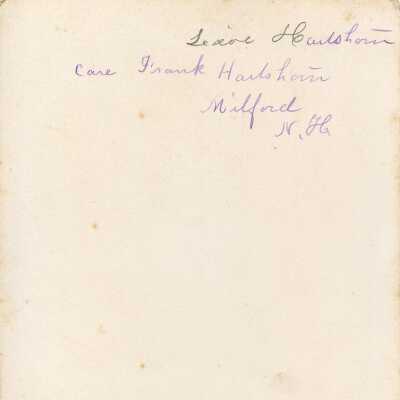 Hartshorn
Care Frank Hartshorn
Milford
N.H